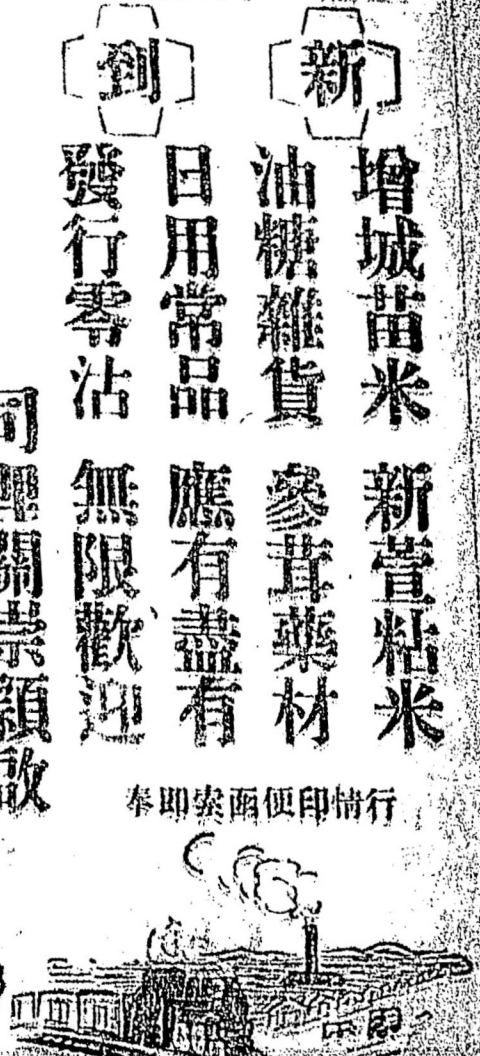 新到
增城苗米 新萱粘米
油糖雜貨 參茸藥材
日用常品 應有盡有
發行零沽 無限歡迎
司理關崇穎啟
行情印便函索即奉